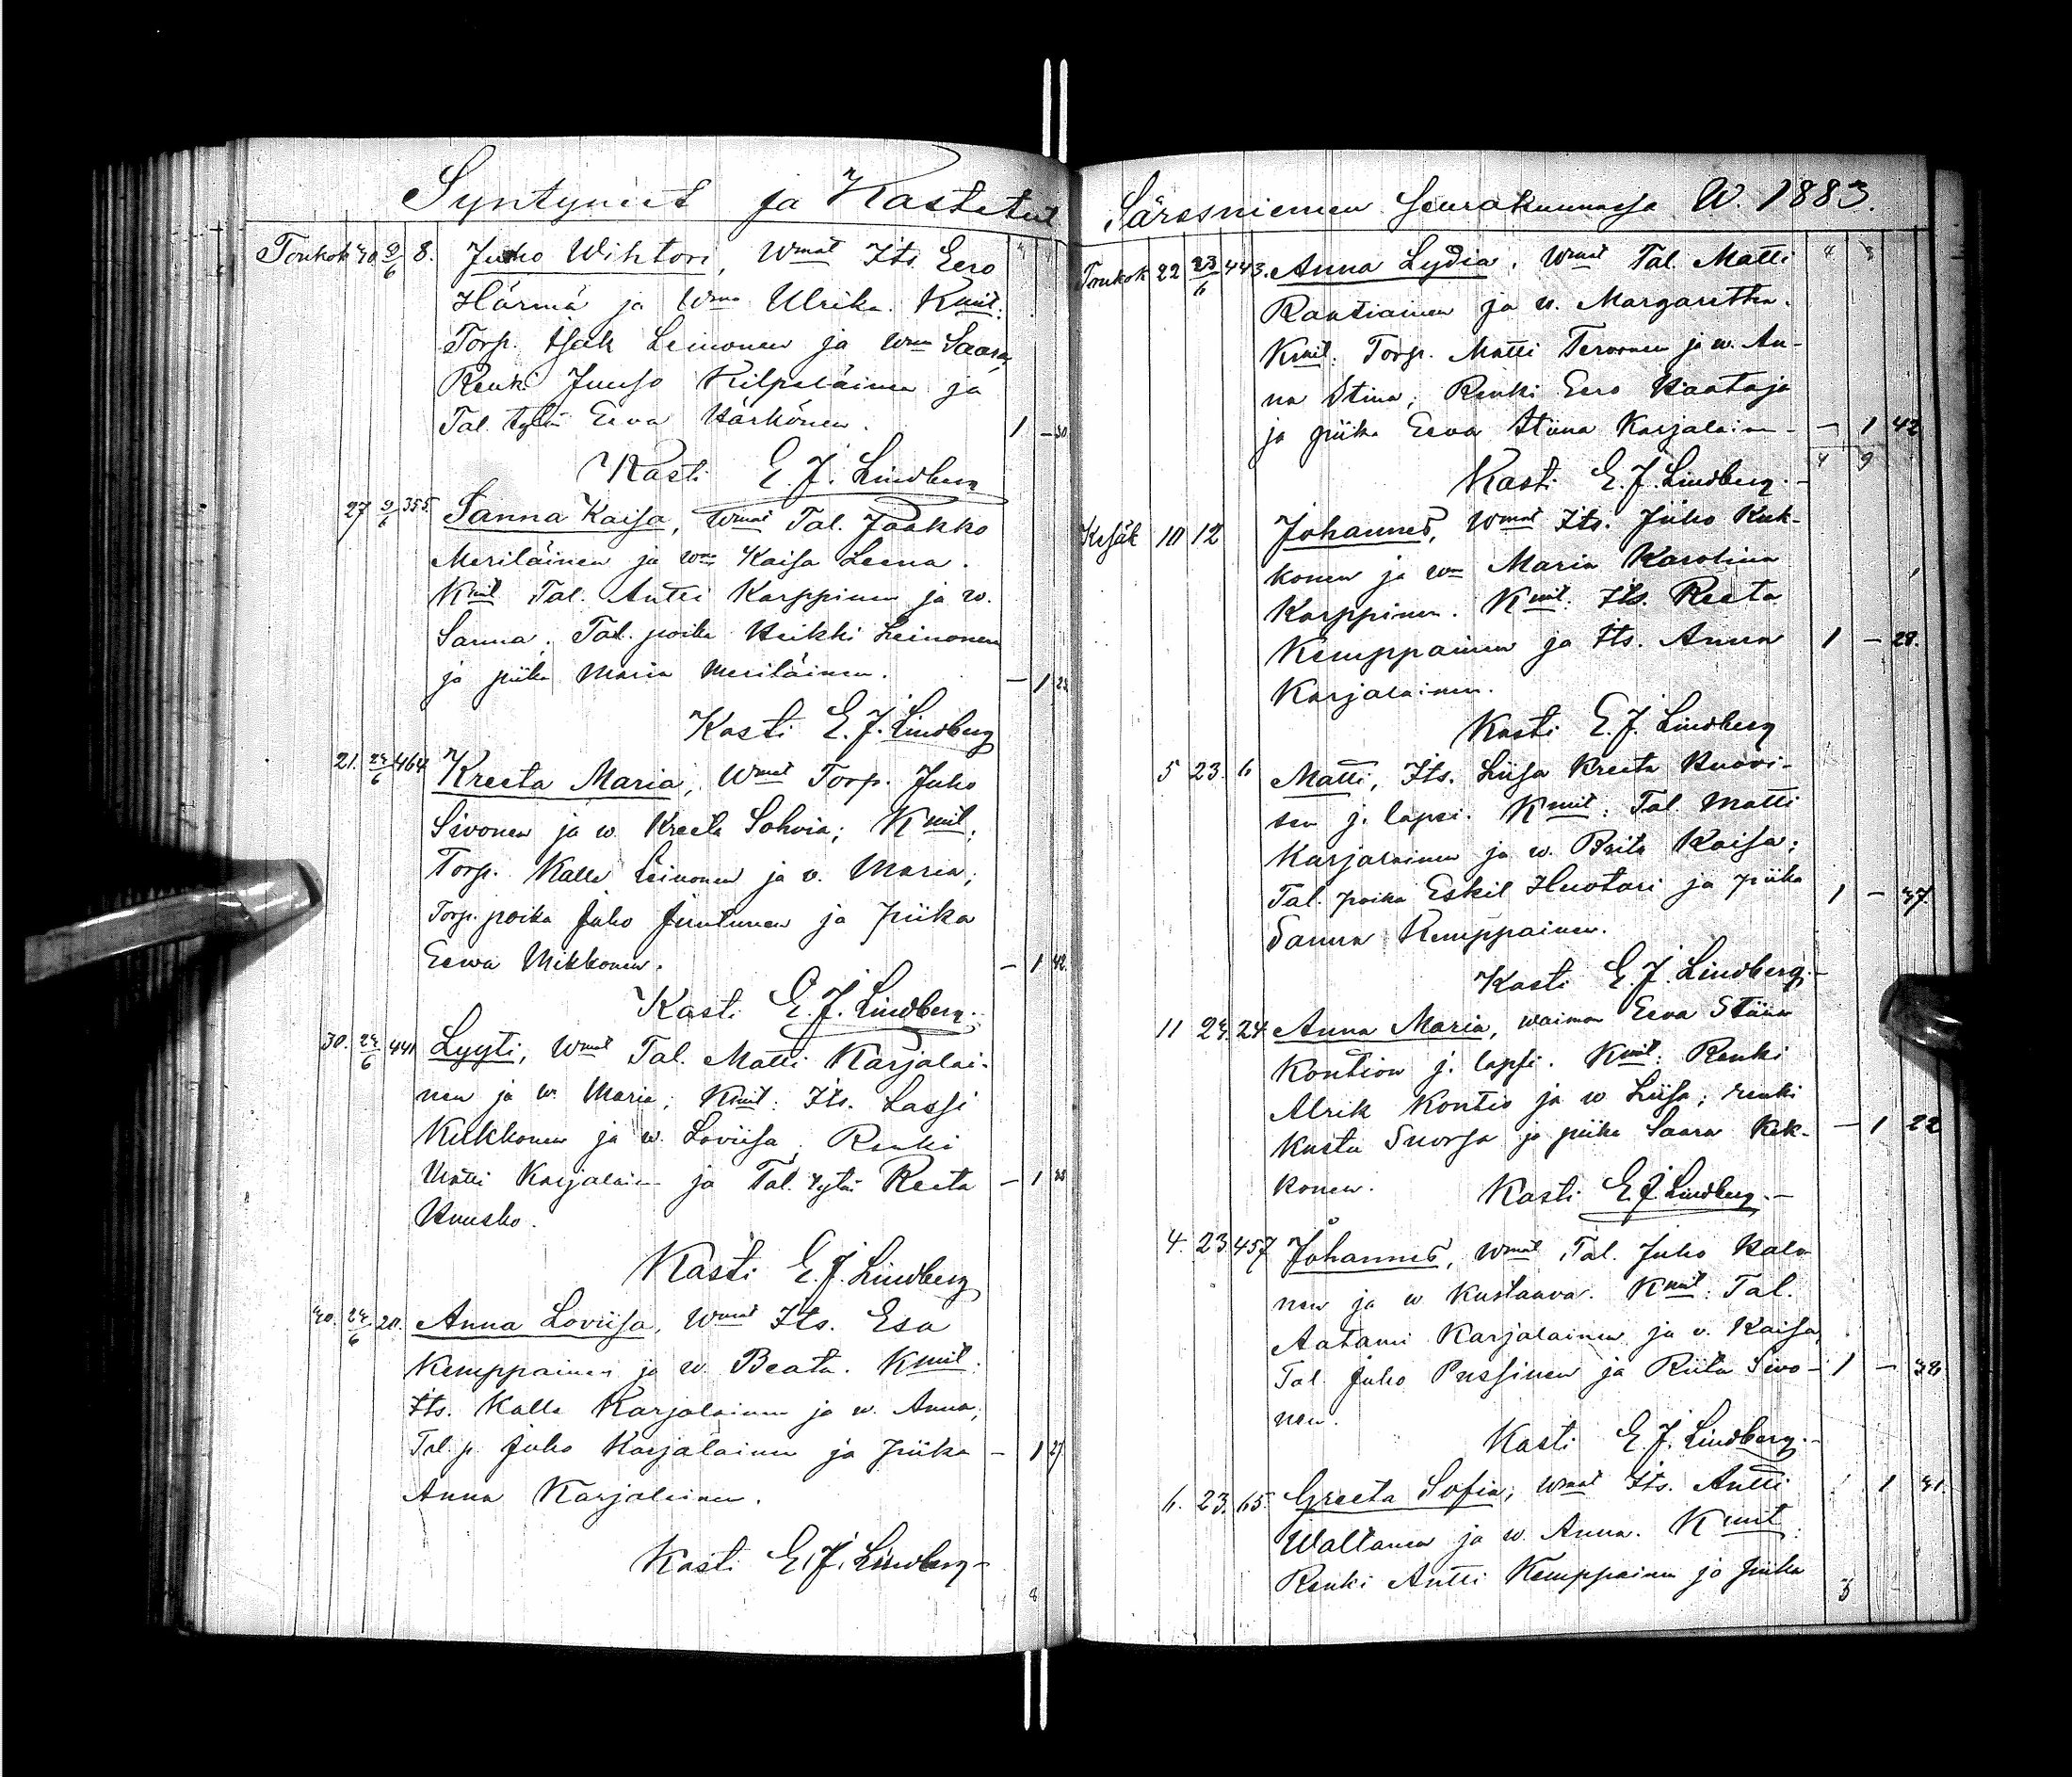 Syntyneet ja Kastetut
Toukok 30 9/6 8. Juho Wihtori, Wmat Its. Eero
Härmä ja Wmo Ulrika. Kmit:
Torp. Isak Leinonen ja Wmo Saara,
Renki Juuso Kilpeläinen ja
Tal. tytär Eeva Härkönen. 1 – 30
Kasti E. J. Lindberg
27 9/6 355. Sanna Kaisa, Wmat Tal. Jaakko
Meriläinen ja Wmo Kaisa Leena.
Kmit Tal. Antti Karppinen ja w.
Sanna; Tal. poika Heikki Leinonen
ja piika Maria Meriläinen. – 1
Kasti E. J. Lindberg
21. 24/6 464 Kreeta Maria, Wmat Torp. Juho
Sivonen ja w. Kreeta Sohvia; Kmit:
Torp. Kalle Leinonen ja v. Maria;
Torp. poika Juho Juntunen ja piika
Eewa Mikkonen. – 1 42.
Kasti E. J. Lindberg.
30. 24/6 441 Lyyti, Wmat Tal. Matti Karjalai-
nen ja w. Maria; Kmit: Its. Lassi
Kukkonen ja w. Loviisa, Renki
Matti Karjalain ja Tal. tytär Reeta – 1
Huusko.
Kasti E. J. Lindberg
30. 24/6 20. Anna Loviisa, Wmat Its. Esa
Kemppainen ja w. Beata. Kmit:
Its. Kalle Karjalainen ja w. Anna;
Tal. p. Juho Karjalainen ja piika – 1 27
Anna Karjalainen.
Kasti E. J. Lindberg –
8
Säresniemen Seurakunnassa W. 1883
Toukok 22 23/6 443. Anna Lydia, Wmat Tal. Matti
Rautiainen ja w. Margaretha.
Kmit: Torp. Matti Tervonen ja w. An-
na Stina; Renki Eero Haataja
ja piika Eeva Stiina Karjalain – – 1 42
4 9
Kasti E. J. Lindberg. –
Kesäk 10 12 Johannes, Wmat Its. Juho Kuk-
konen ja Wmo Maria Karolina
Karppinen. Kmit: Its. Reeta
Kemppainen ja Its. Anna 1 – 28.
Karjalainen.
Kasti E. J. Lindberg
5 23. 6 Matti, Its. Liisa Kreeta Huovi-
sen j. lapsi. Kmit: Tal. Matti
Karjalainen ja w. Brita Kaisa;
Tal. poika Eskil Huotari ja piika 1 – 37.
Sanna Kemppainen.
Kasti E. J. Lindberg. –
11 24. 24 Anna Maria, waimon Eeva Stiina
Kontion j. lapsi. Kmit: Renki
Alrik Kontio ja w Liisa; renki
Kusta Suorsa ja piika Saara Kek- – 1 22
konen. Kasti E. J. Lindberg. –
4. 23 457 Johannes, Wmat Tal. Juho Hala
nen ja w Kustaava. Kmit: Tal.
Aatami Karjalainen ja v. Kaisa,
Tal. Juho Pussinen ja Riita Sivo- 1 – 38
nen.
Kasti E. J. Lindberg. –
6. 23. 65. Greeta Sofia, Wmat Its. Antti 1 31.
Waltanen ja w. Anna. Kmit:
Renki Antti Kemppainen ja piika
3